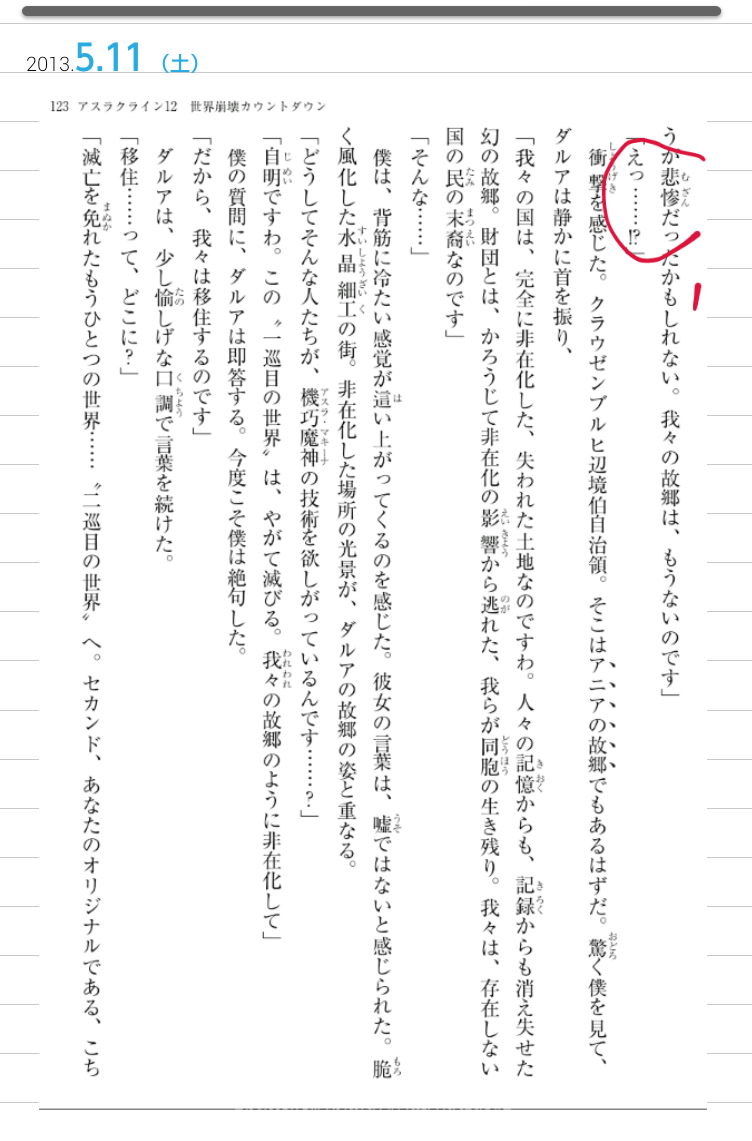 2013.5.11（土）
123 アスラクライン12 世界崩壊カウントダウン
うが悲惨だったかもしれない。我々の故郷は、もうないのです」
「えっ……!?」
衝撃を感じた。クラウゼンブルヒ辺境伯自治領。そこはアニアの故郷でもあるはずだ。驚く僕を見て、
ダルアは静かに首を振り、
「我々の国は、完全に非在化した、失われた土地なのですわ。人々の記憶からも、記録からも消え失せた
幻の故郷。財団とは、かろうじて非在化の影響から逃れた、我らが同胞の生き残り。我々は、存在しない
国の民の末裔なのです」
「そんな……」
僕は、背筋に冷たい感覚が這い上がってくるのを感じた。彼女の言葉は、嘘ではないと感じられた。脆
く風化した水晶細工の街。非在化した場所の光景が、ダルアの故郷の姿と重なる。
「どうしてそんな人たちが、機巧魔神の技術を欲しがっているんです……？」
「自明ですわ。この〝一巡目の世界〟は、やがて滅びる。我々の故郷のように非在化して」
僕の質問に、ダルアは即答する。今度こそ僕は絶句した。
「だから、我々は移住するのです」
ダルアは、少し愉しげな口調で言葉を続けた。
「移住……って、どこに？」
「滅亡を免れたもうひとつの世界……〝二巡目の世界〟へ。セカンド、あなたのオリジナルである、こち